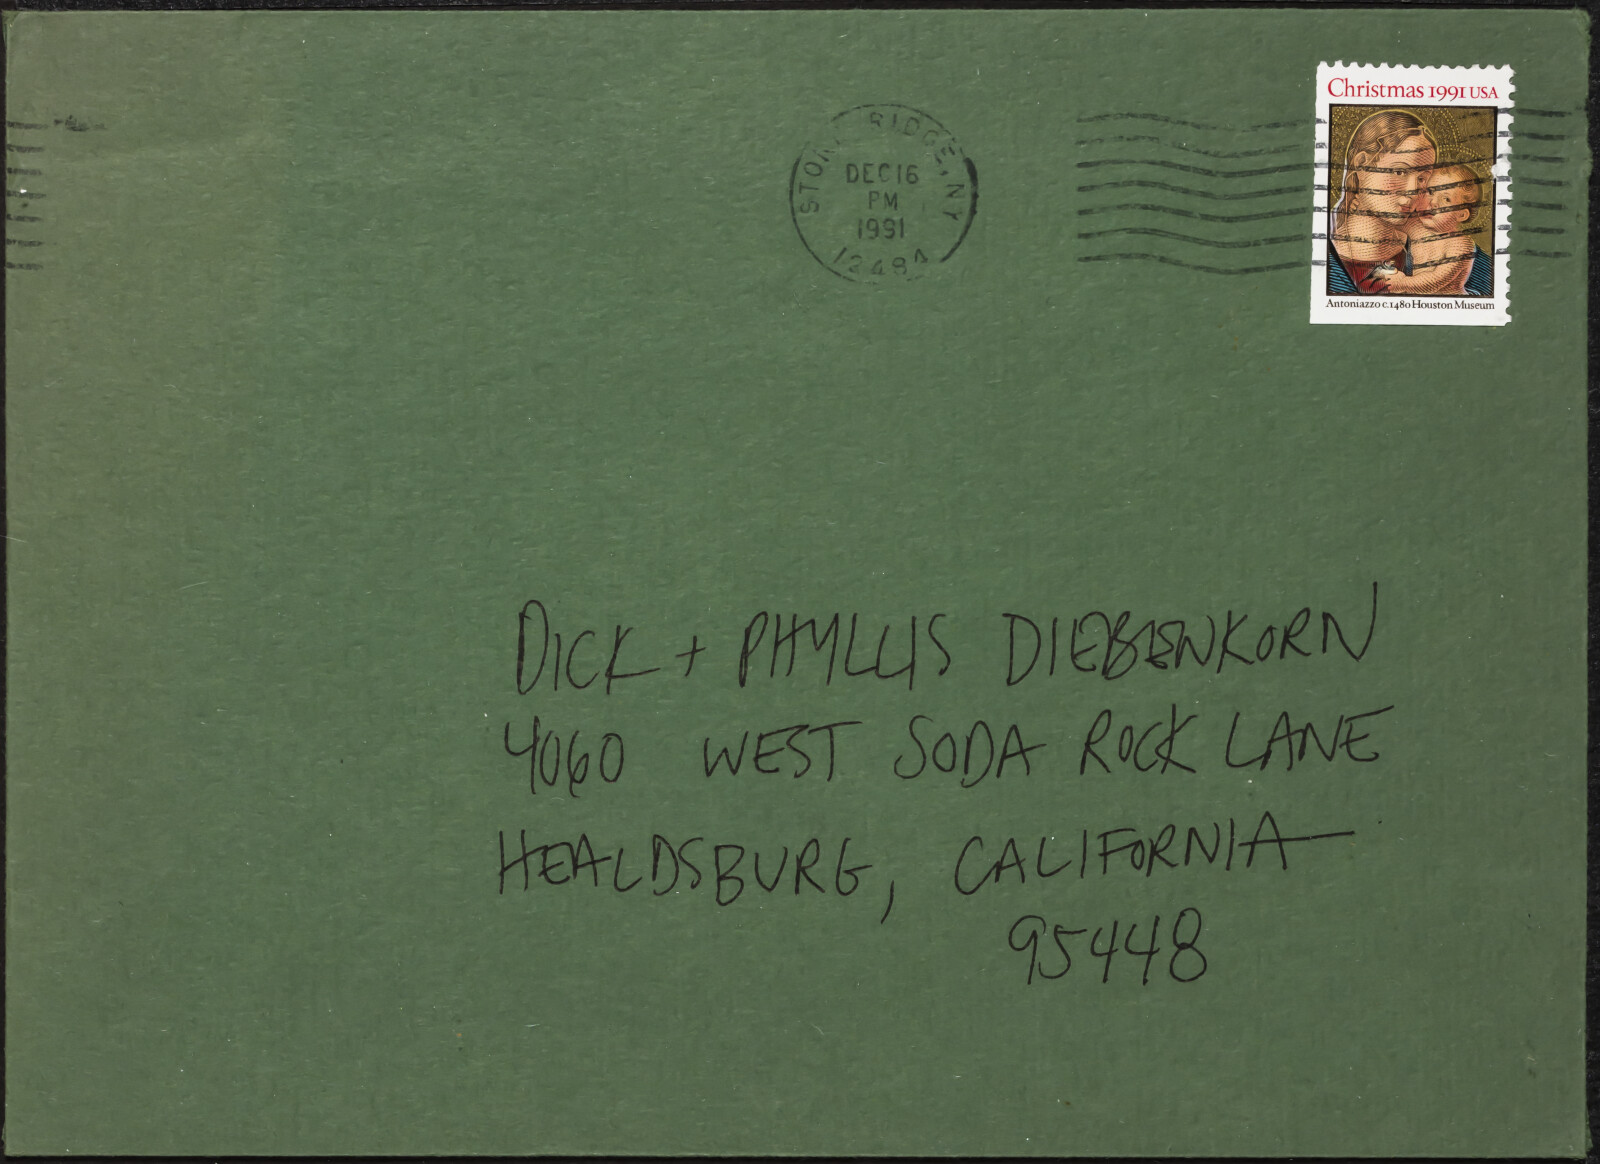 Christmas 1991 USA
Antoniazzo c.1480 Houston Museum
RIDGE, NY
DEC 16
PM
1991
DICK + PHYLLIS DIEBENKORN
4060 WEST SODA ROCK LANE
HEALDSBURG, CALIFORNIA
95448